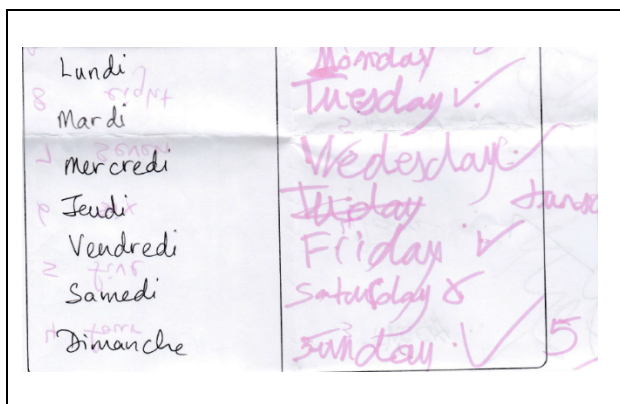 Lundi Monday
Mardi Tuesday
Mercredi Wedesday
Jeudi
Vendredi Friday
Samedi Saturday
Dimanche Sunday 5